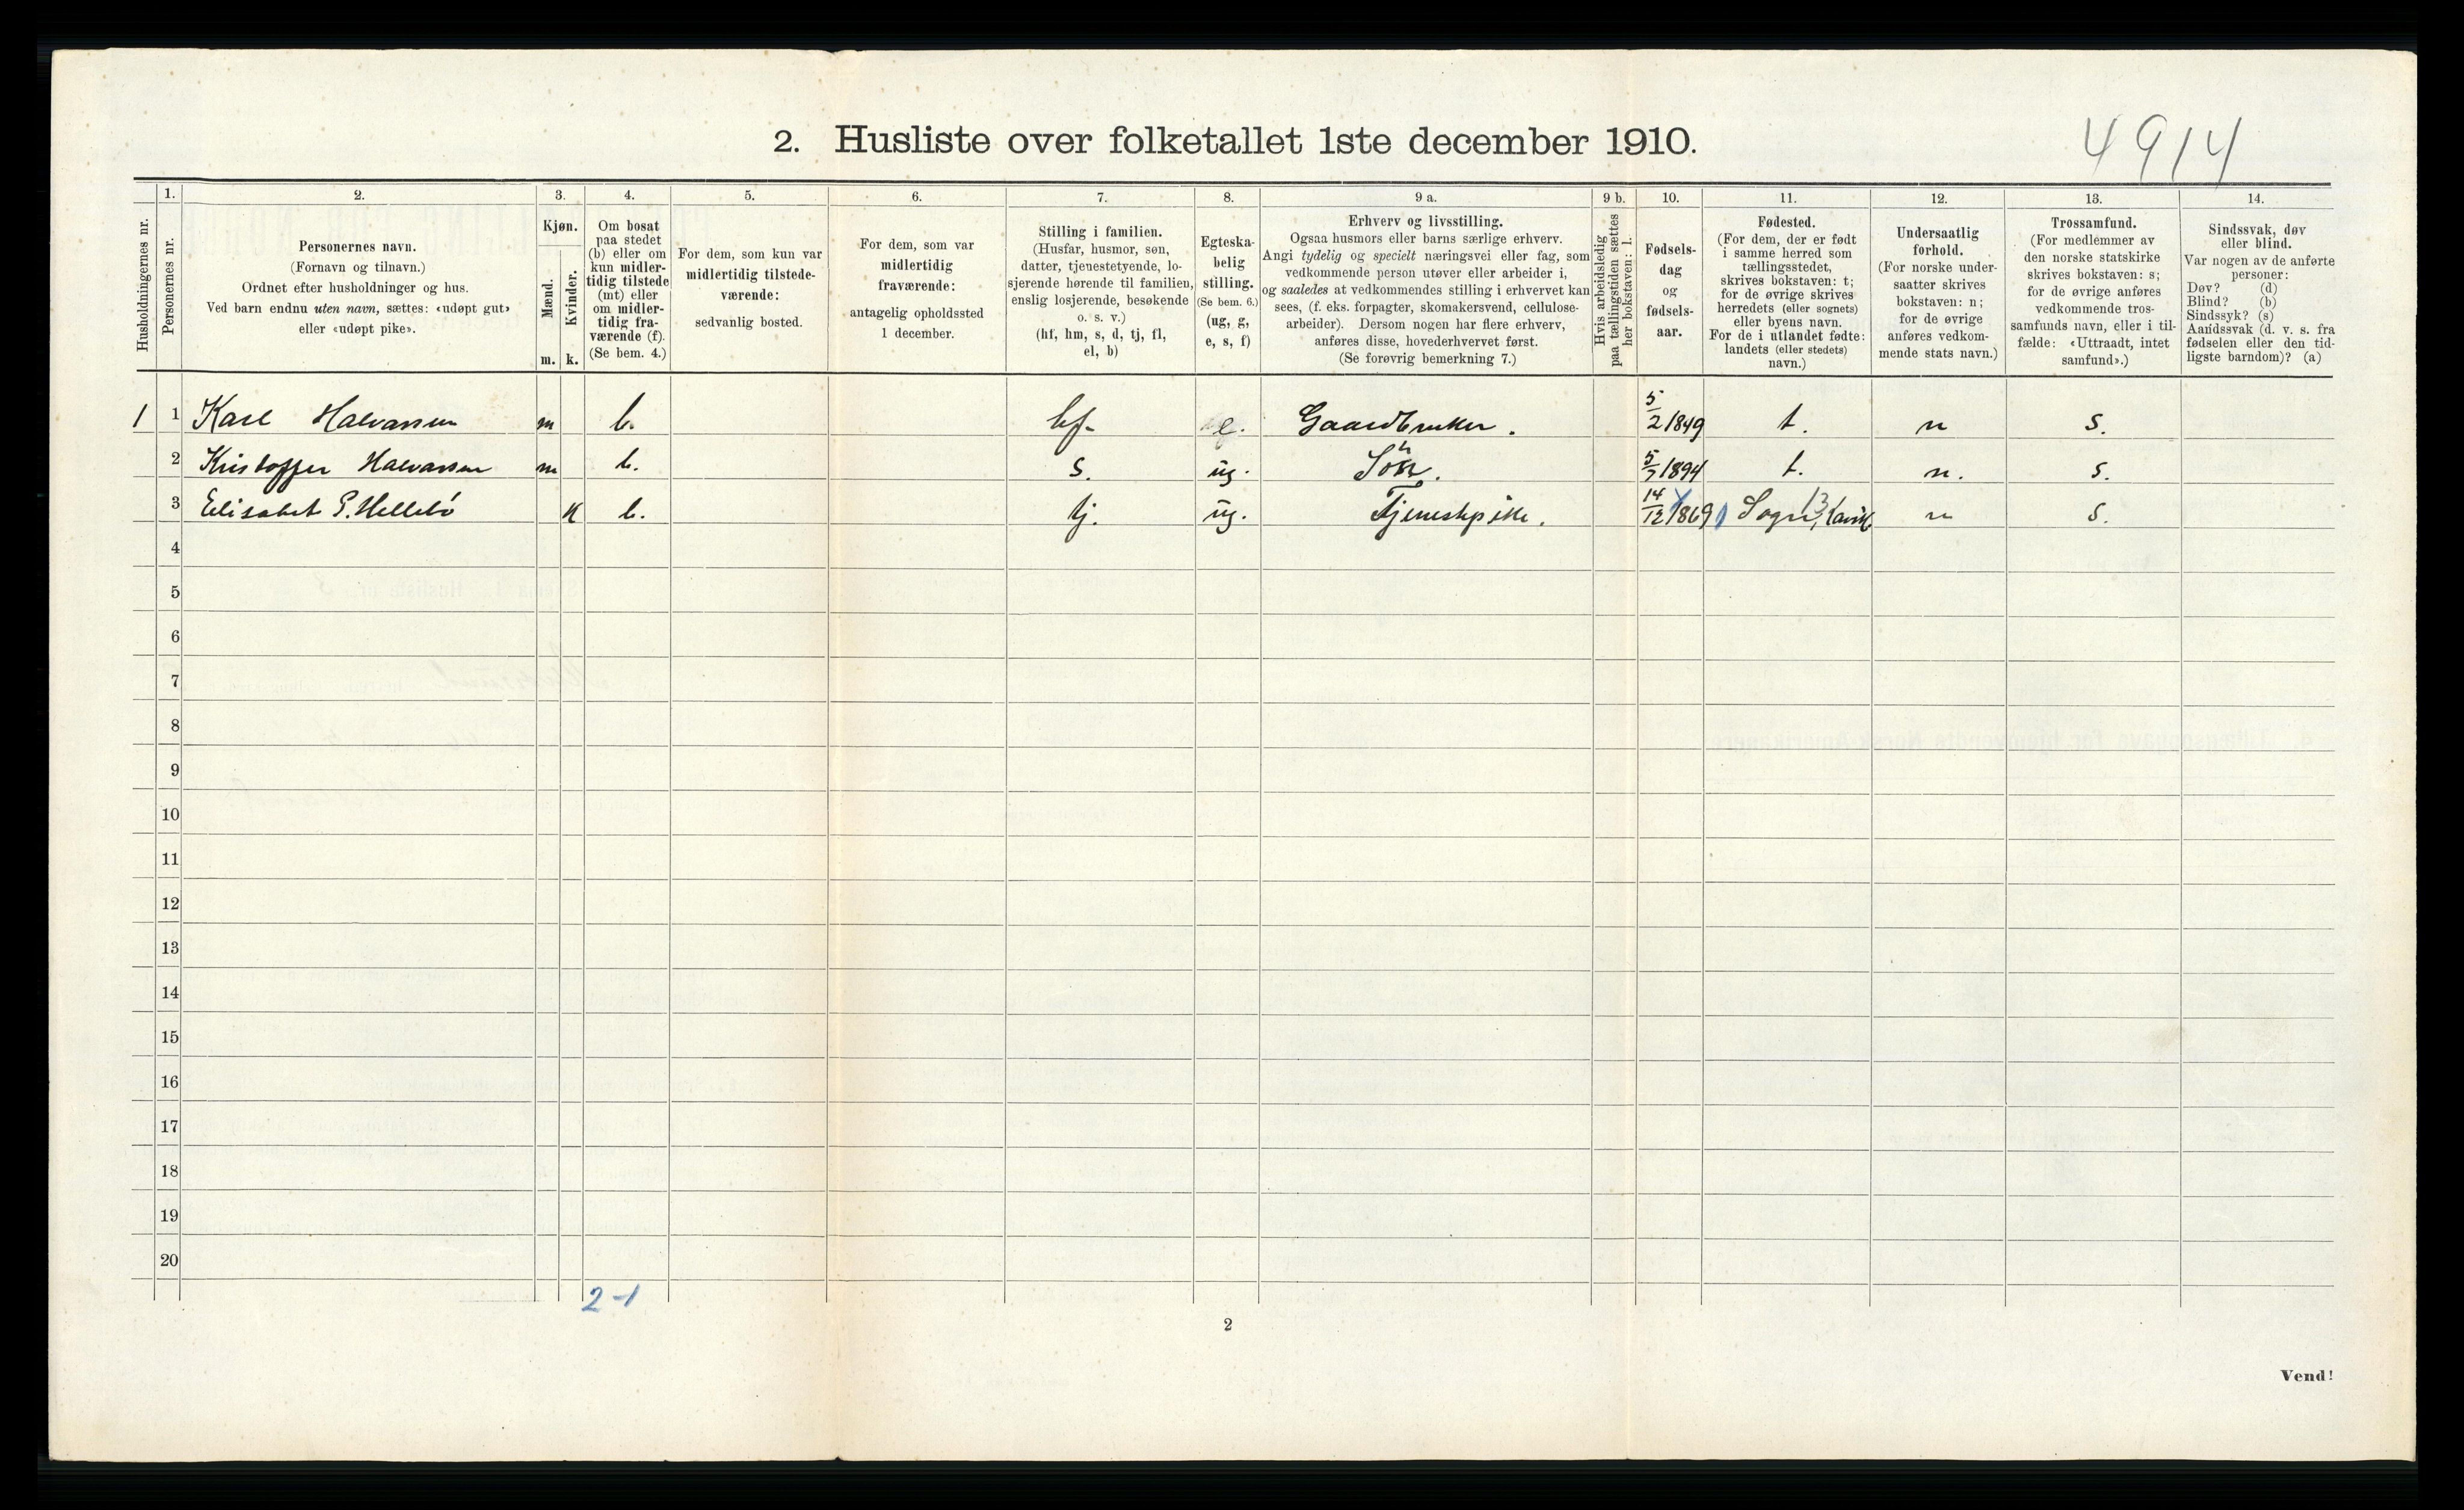 4914
2. Husliste over folketallet 1ste december 1910.
Husholdningernes nr.
1.
Personernes nr.
2.
Personernes navn.
(Fornavn og tilnavn.)
Ordnet efter husholdninger og hus.
Ved barn endnu uten navn, sættes: «udøpt gut»
eller «udøpt pike».
3.
Kjøn.
Mænd.
Kvinder.
m. k.
4.
Om bosat
paa stedet
(b) eller om
kun midler-
tidig tilstede
(mt) eller
om midler-
tidig fra-
værende (f).
(Se bem. 4.)
5.
For dem, som kun var
midlertidig tilstede-
værende:
sedvanlig bosted.
6.
For dem, som var
midlertidig
fraværende:
antagelig opholdssted
1 december.
7.
Stilling i familien.
(Husfar, husmor, søn,
datter, tjenestetyende, lo-
sjerende hørende til familien,
enslig losjerende, besøkende
o. s. v.)
(hf, hm, s, d, tj, fl,
el, b)
8.
Egteska-
belig
stilling.
(Se bem. 6.)
(ug, g,
e, s, f)
9 a.
Erhverv og livsstilling.
Ogsaa husmors eller barns særlige erhverv.
Angi tydelig og specielt næringsvei eller fag, som
vedkommende person utøver eller arbeider i,
og saaledes at vedkommendes stilling i erhvervet kan
sees, (f. eks. forpagter, skomakersvend, cellulose-
arbeider). Dersom nogen har flere erhverv,
anføres disse, hovederhvervet først.
(Se forøvrig bemerkning 7.)
9 b.
Hvis arbeidsledig
paa tællingstiden sættes
her bokstaven: l.
10.
Fødsels-
dag
og
fødsels-
aar.
11.
Fødested.
(For dem, der er født
i samme herred som
tællingsstedet,
skrives bokstaven: t;
for de øvrige skrives
herredets (eller sognets)
eller byens navn.
For de i utlandet fødte:
landets (eller stedets)
navn.)
12.
Undersaatlig
forhold.
(For norske under-
saatter skrives
bokstaven: n;
for de øvrige
anføres vedkom-
mende stats navn.)
13.
Trossamfund.
(For medlemmer av
den norske statskirke
skrives bokstaven: s;
for de øvrige anføres
vedkommende tros-
samfunds navn, eller i til-
fælde: «Uttraadt, intet
samfund».)
14.
Sindssvak, døv
eller blind.
Var nogen av de anførte
personer:
Døv? (d)
Blind? (b)
Sindssyk? (s)
Aandssvak (d. v. s. fra
fødselen eller den tid-
ligste barndom)? (a)
1 1 Karl Halvarsen m b. hf. e. Gaardbruker. 5/2 1849 t. n s.
2 Kristoffer Halvarsen m b. s. ug. Søn. 5/7 1894 t. n. s.
3 Elisabet P. Hellebö K b. tj. ug. Tjenestepike. 14/12 1869 Sogn, n s.
4
5
6
7
8
9
10
11
12
13
14
15
16
17
18
19
20
2-1
2
Vend!